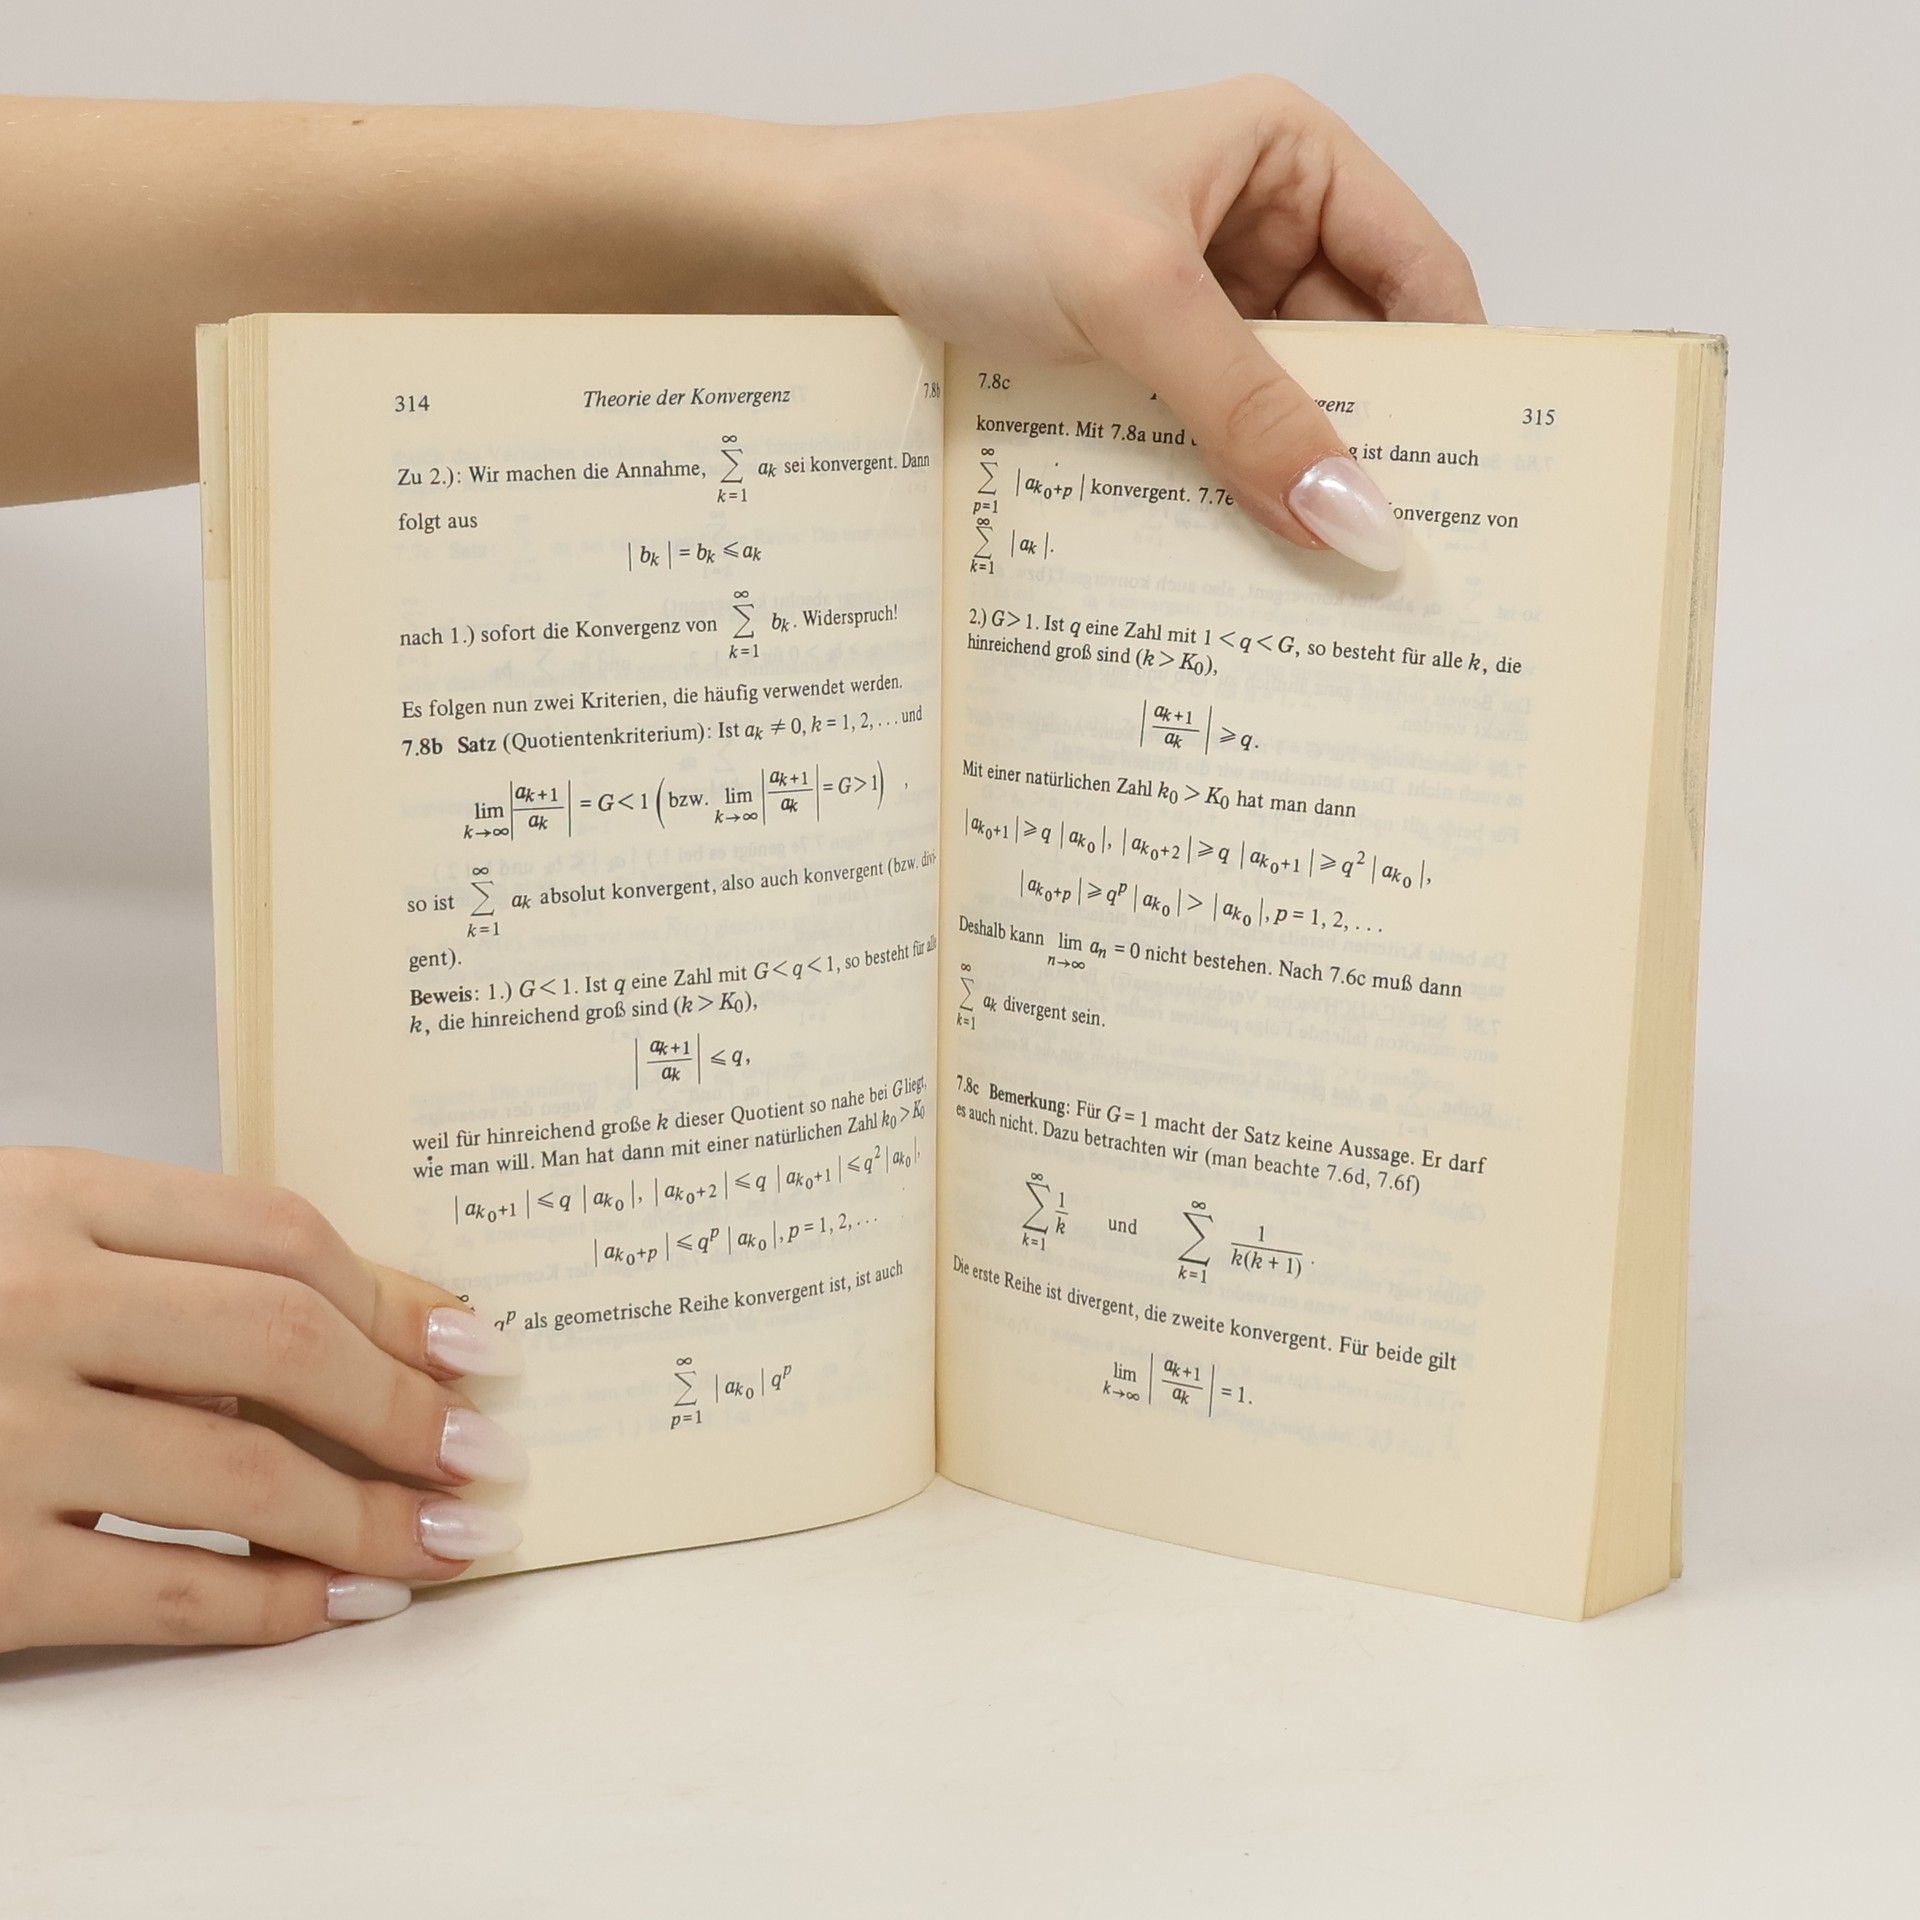 314 Theorie der Konvergenz 7.8b
Zu 2.): Wir machen die Annahme, ∑_{k=1}^{∞} a_k sei konvergent. Dann
folgt aus
| b_k | = b_k ⩽ a_k
nach 1.) sofort die Konvergenz von ∑_{k=1}^{∞} b_k. Widerspruch!
Es folgen nun zwei Kriterien, die häufig verwendet werden.
7.8b Satz (Quotientenkriterium): Ist a_k ≠ 0, k = 1, 2, . . . und
lim_{k→∞} | a_{k+1} / a_k | = G < 1 ( bzw. lim_{k→∞} | a_{k+1} / a_k | = G > 1 ) ,
so ist ∑_{k=1}^{∞} a_k absolut konvergent, also auch konvergent (bzw. diver-
gent).
Beweis: 1.) G < 1. Ist q eine Zahl mit G < q < 1, so besteht für alle
k, die hinreichend groß sind (k > K_0),
| a_{k+1} / a_k | ⩽ q,
weil für hinreichend große k dieser Quotient so nahe bei G liegt,
wie man will. Man hat dann mit einer natürlichen Zahl k_0 > K_0
| a_{k_0+1} | ⩽ q | a_{k_0} |, | a_{k_0+2} | ⩽ q | a_{k_0+1} | ⩽ q^2 | a_{k_0} |,
| a_{k_0+p} | ⩽ q^p | a_{k_0} |, p = 1, 2, . . .
q^p als geometrische Reihe konvergent ist, ist auch
∑_{p=1}^{∞} | a_{k_0} | q^p
7.8c 315
konvergent. Mit 7.8a und ist dann auch
∑_{p=1}^{∞} | a_{k_0+p} | konvergent. 7.7e onvergenz von
∑_{k=1}^{∞} | a_k |.
2.) G > 1. Ist q eine Zahl mit 1 < q < G, so besteht für alle k, die
hinreichend groß sind (k > K_0),
| a_{k+1} / a_k | ⩾ q.
Mit einer natürlichen Zahl k_0 > K_0 hat man dann
| a_{k_0+1} | ⩾ q | a_{k_0} |, | a_{k_0+2} | ⩾ q | a_{k_0+1} | ⩾ q^2 | a_{k_0} |,
| a_{k_0+p} | ⩾ q^p | a_{k_0} | > | a_{k_0} |, p = 1, 2, . . .
Deshalb kann lim_{n→∞} a_n = 0 nicht bestehen. Nach 7.6c muß dann
∑_{k=1}^{∞} a_k divergent sein.
7.8c Bemerkung: Für G = 1 macht der Satz keine Aussage. Er darf
es auch nicht. Dazu betrachten wir (man beachte 7.6d, 7.6f)
∑_{k=1}^{∞} 1/k und ∑_{k=1}^{∞} 1/(k(k + 1)) .
Die erste Reihe ist divergent, die zweite konvergent. Für beide gilt
lim_{k→∞} | a_{k+1} / a_k | = 1.